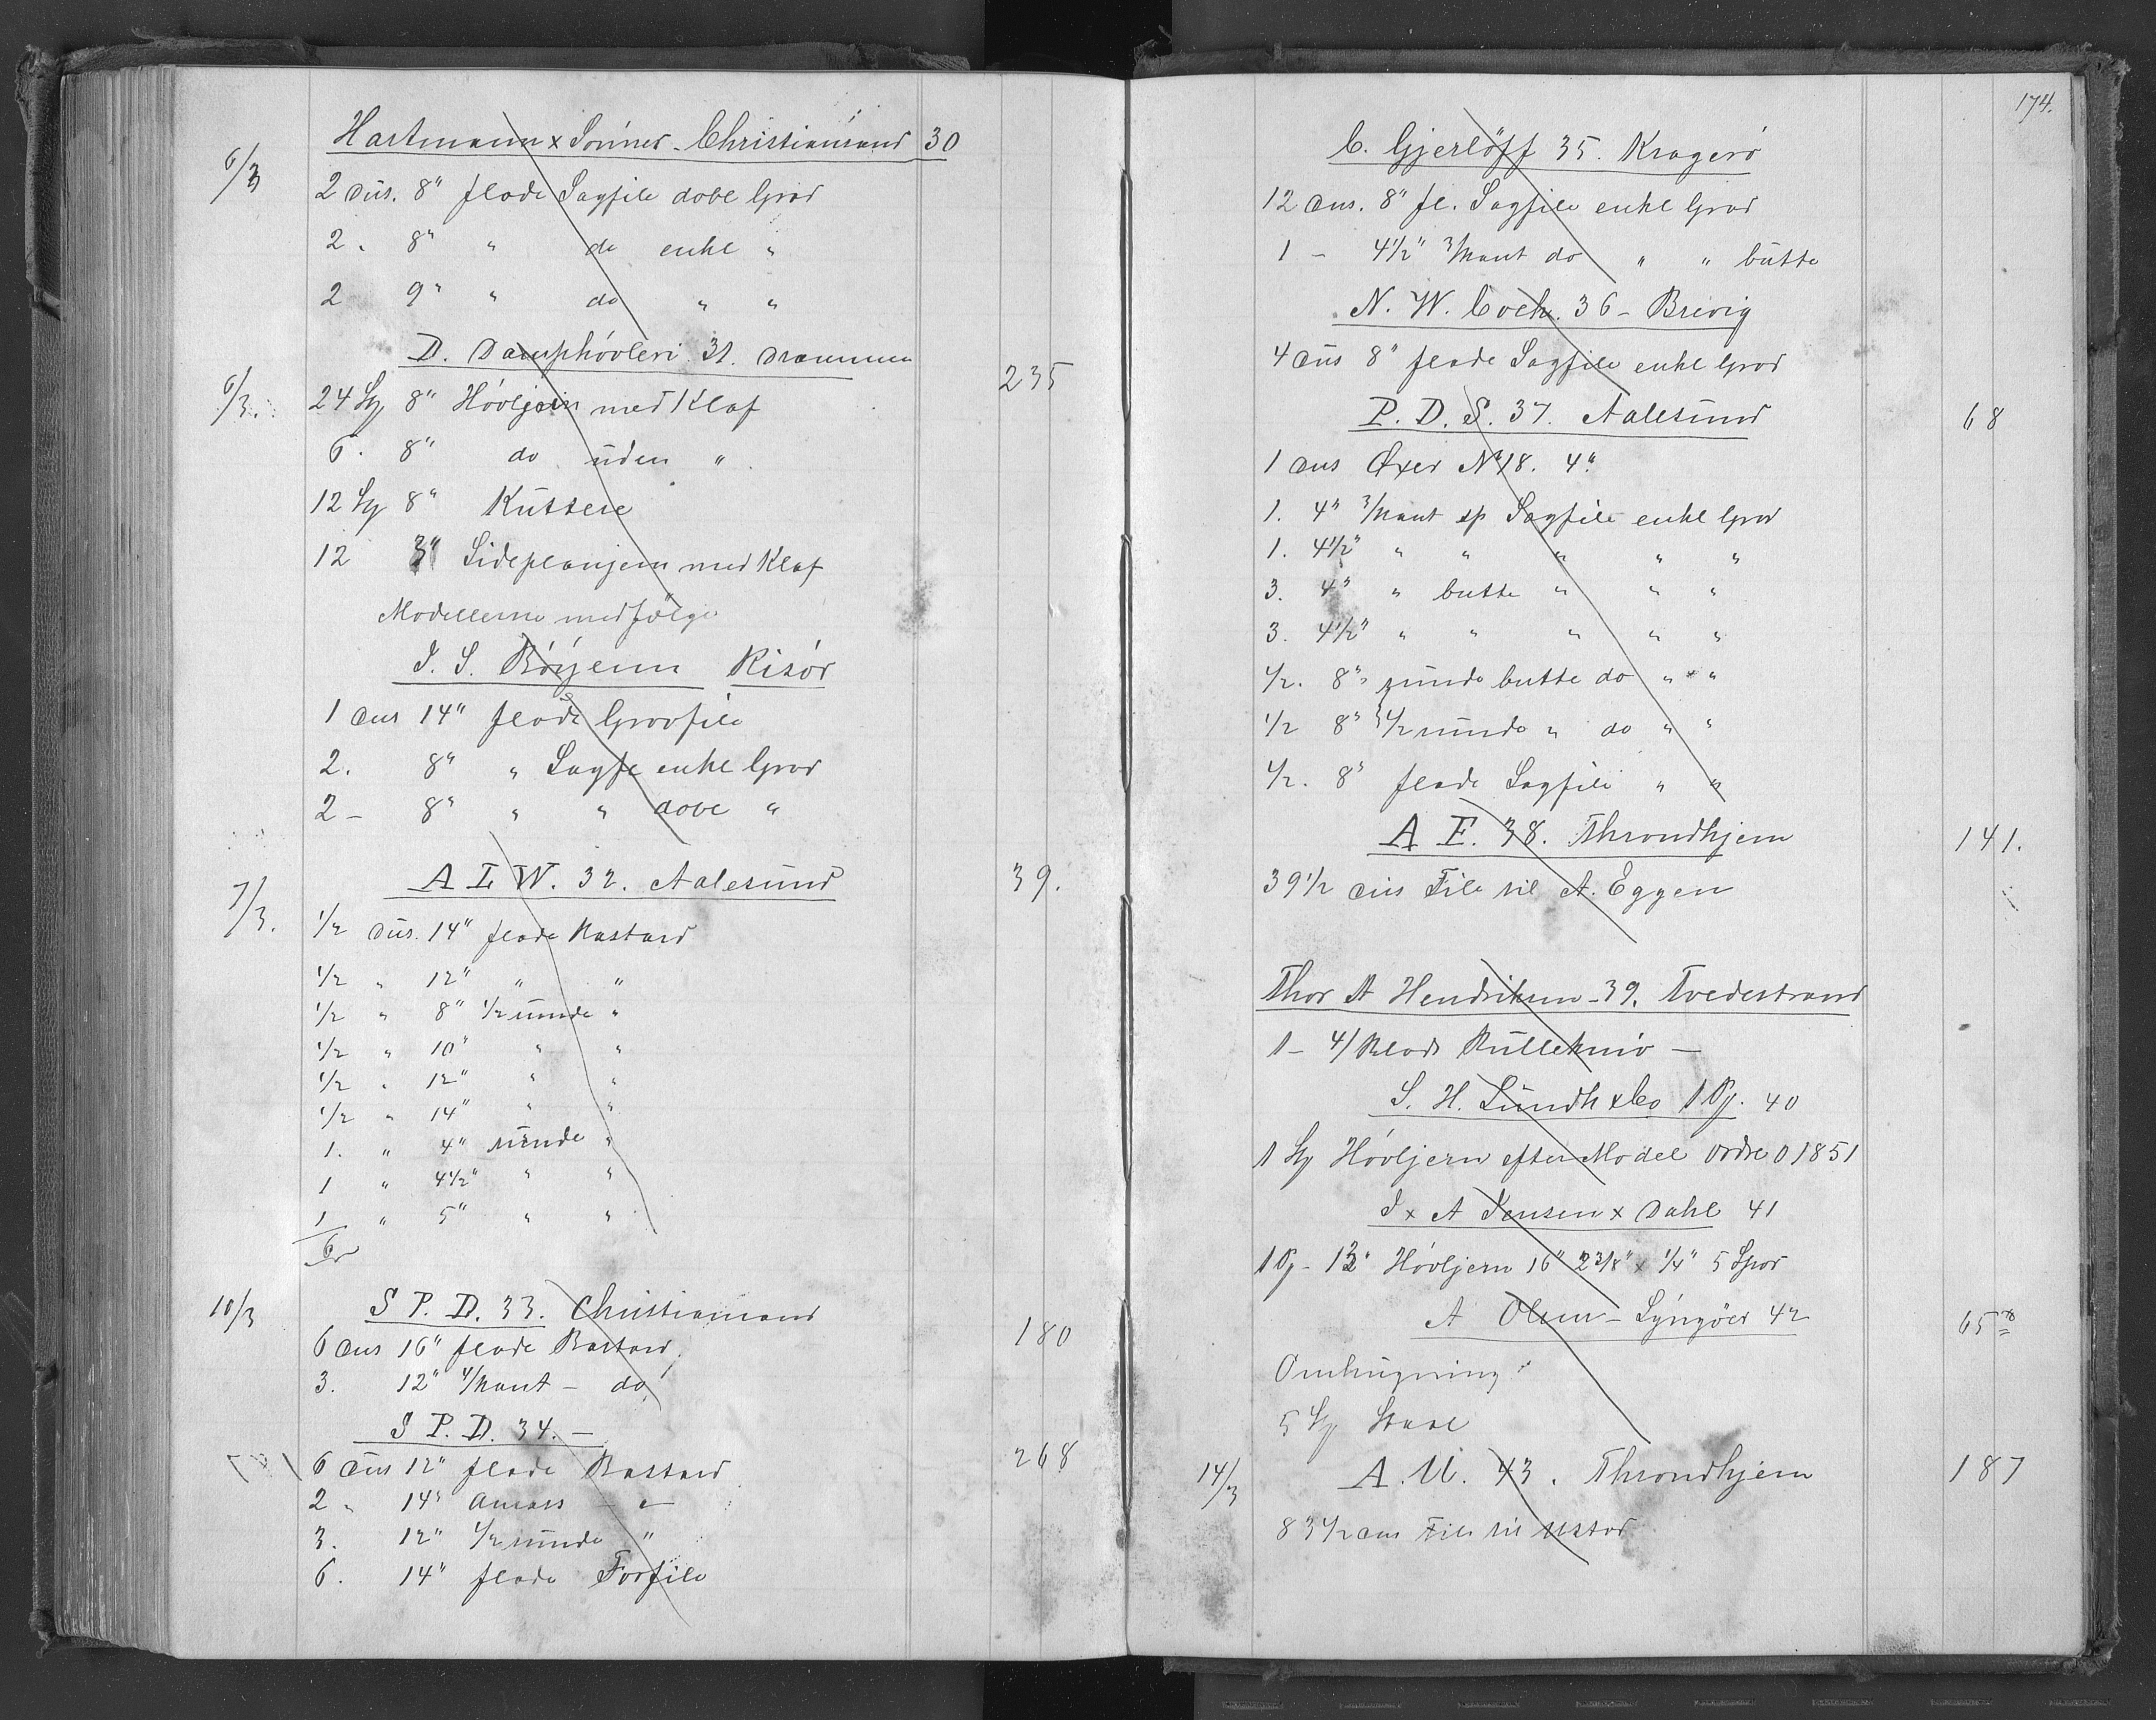 Hartmann x Sønner - Christiansand 30
6/3 2 dus. 8" flade Sagfile dobl Grad
2 . 8" " do enkl "
2 9" " do " "
D. Damphøvleri 31. Drammen 235
6/3. 24 Stj 8" Høvljern med Klaf
6 . 8" do uden "
12 Stj 8" Kuttere
12 3" Sideplanjern med Klaf
Modellerne medfølge
J. S. Risør
1 dus 14" flade Grovfile
2. 8" " Sagfe enkl Grad
2 - 8" " " dobl "
A I W. 32. Aalesund 39.
7/3. 1/2 dus. 14" flade Bastard
1/2 " 12" " "
1/2 " 8" 1/2 runde "
1/2 " 10" " "
1/2 " 12" " "
1/2 " 14" " "
1. " 4" runde "
1 " 4 1/2" " "
1 " 5" " "
6
10/3 S P. D. 33. Christiansand
6 dus 16" flade Bastard. 180
3. 12" 4/kant - do
S P. D. 34. -
6 dus 12" flade Bastard 268
2 " 14" Ansats - " -
3. 12" 1/2 runde "
6. 14" flade Forfile
174.
C. Gjerløff 35. Kragerø
12 dus. 8" fl. Sagfile enkl Grad
1 - 4 1/2" 3/kant do " " butte
N. W. Coch. 36 - Brevig
4 dus 8" flade Sagfile enkl Grad
P. D. S. 37. Aalesund 68
1 dus Øxer No 18. 4"
1. 4" 3/kant sp Sagfile enkl Grad
1. 4 1/2" " " " " "
3. 4" " butte " " "
3. 4 1/2" " " " " "
1/2. 8" runde butte do " "
1/2 8" 1/2 runde " do " "
1/2. 8" flade Sagfile " "
A E. 38. Throndhjem 141.
39 1/2 dus File til A. Eggen
Thor A Hendriksen - 39. Tvedestrand
1 - 4/ Blads Rullekniv -
S. H. Lundh & Co 1 Pj. 40
1 Stj Høvljern efter Model Ordre O 1851
J x A Jensen x Dahl 41
1 Pj - 12" Høvljern 16" 2 3/8" x 1/4" 5 Spor
A Olsen - Lyngøer 42 65
Omhugning
5 Stj Staal
14/3 A. U. 43. Throndhjem 187
83 1/2 dus File til Ustad